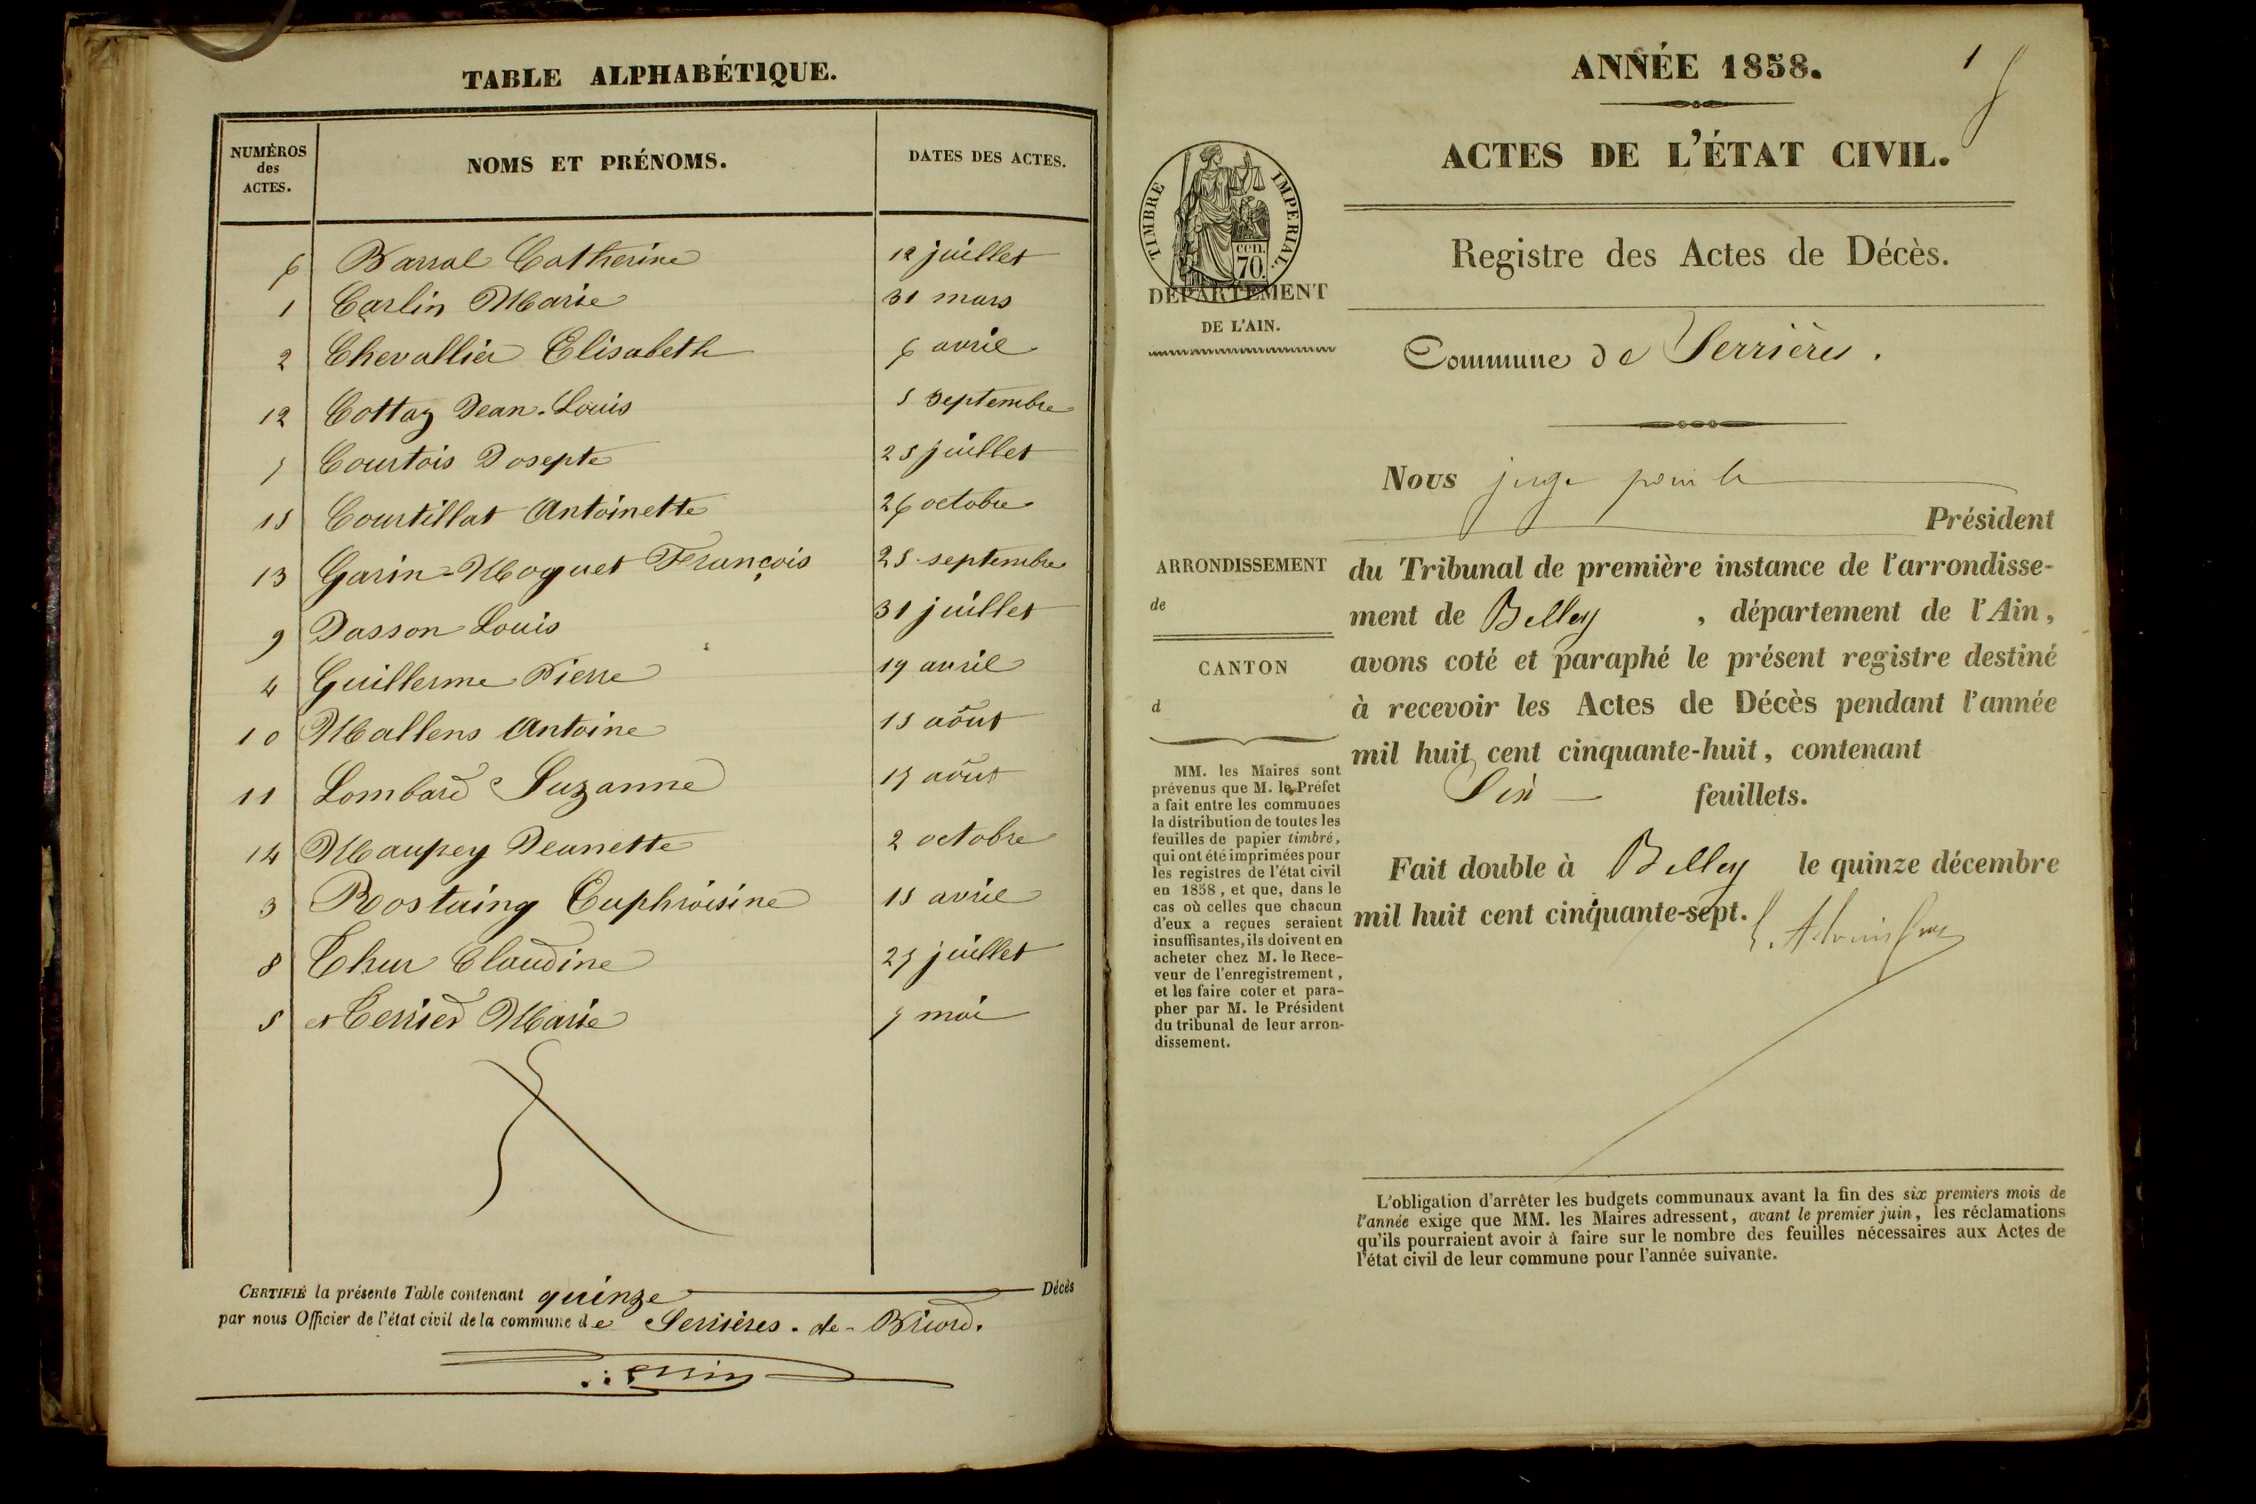 TABLE ALPHABÉTIQUE.
NUMÉROS des ACTES. NOMS ET PRÉNOMS. DATES DES ACTES.
6 Barral Catherine 12 juillet
1 Carlin Marie 31 mars
2 Chevallier Elisabeth 6 avril
12 Cottaz Jean-Louis 5 septembre
7 Courtois Josepte 25 juillet
15 Courtillat Antoinette 26 octobre
13 Garin-Moguet François 25 septembre
9 Jasson Louis 31 juillet
4 Guillerme Pierre 19 avril
10 Mallens Antoine 15 août
11 Lombard Suzanne 17 août
14 Maupey Jeunette 2 octobre
3 Rostaing Euphroisine 15 avril
8 Thur Claudine 27 juillet
5 et Terrier Marie 7 mai
CERTIFIÉ la présente Table contenant quinze Décès
par nous Officier de l'état civil de la commune de Serrières-de-Briord.
ANNÉE 1858.
1
ACTES DE L'ÉTAT CIVIL.
TIMBRE IMPERIAL.
cen.
70.
Registre des Actes de Décès.
DÉPARTEMENT
DE L'AIN.
Commune de Serrières.
Nous juge pour le
Président
ARRONDISSEMENT
de
CANTON
d
du Tribunal de première instance de l'arrondisse-
ment de Belley, département de l'Ain,
avons coté et paraphé le présent registre destiné
à recevoir les Actes de Décès pendant l'année
mil huit cent cinquante-huit, contenant
Six feuillets.
Fait double à Belley le quinze décembre
mil huit cent cinquante-sept.
MM. les Maires sont
prévenus que M. le Préfet
a fait entre les communes
la distribution de toutes les
feuilles de papier timbré,
qui ont été imprimées pour
les registres de l'état civil
en 1858, et que, dans le
cas où celles que chacun
d'eux a reçues seraient
insuffisantes, ils doivent en
acheter chez M. le Rece-
veur de l'enregistrement,
et les faire coter et para-
pher par M. le Président
du tribunal de leur arron-
dissement.
L'obligation d'arrêter les budgets communaux avant la fin des six premiers mois de
l'année exige que MM. les Maires adressent, avant le premier juin, les réclamations
qu'ils pourraient avoir à faire sur le nombre des feuilles nécessaires aux Actes de
l'état civil de leur commune pour l'année suivante.